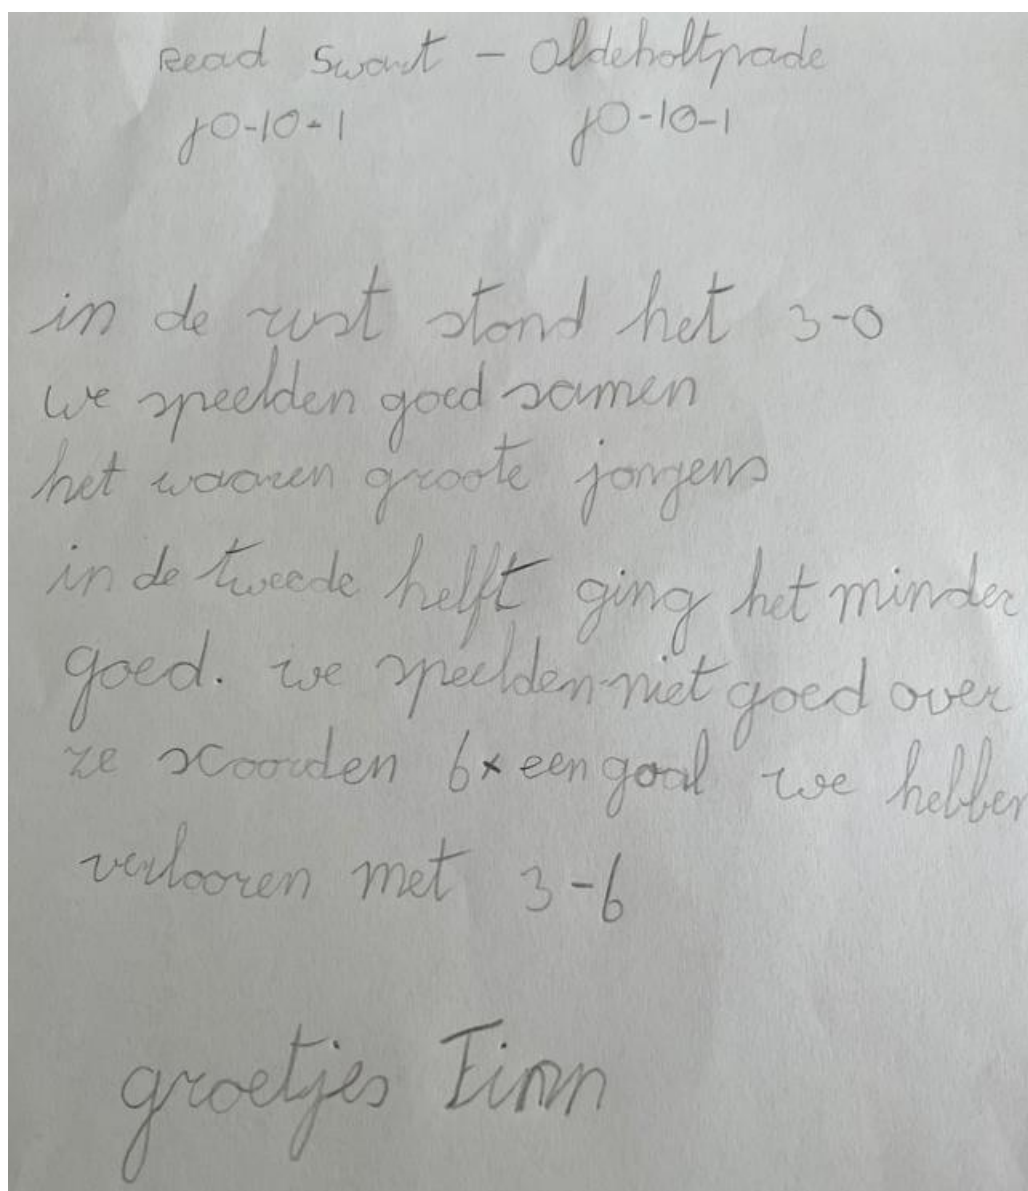 Read Swart - Oldeholtpade
jO-10-1 jO-10-1
in de rust stond het 3-0
we speelden goed samen
het waaren groote jongens
in de tweede helft ging het minder
goed. we speelden niet goed over
ze scoorden 6x een goal we hebben
verlooren met 3-6
groetjes Finn